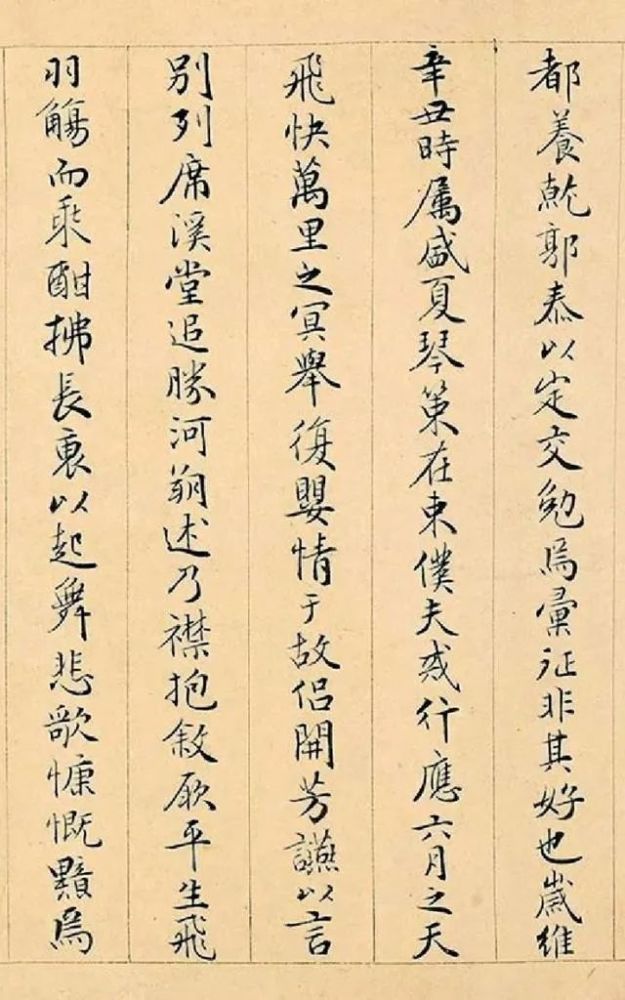 都養乾郭泰以定交勉焉彙征非其好也歲維
辛丑時属盛夏琴策在東僕夫戒行應六月之天
飛快萬里之冥舉復嬰情于故侣開芳讌以言
别列席溪堂追勝河朔述乃襟抱敘厥平生飛
羽觴而乘酣拂長裏以起舞悲歌慷慨黯焉